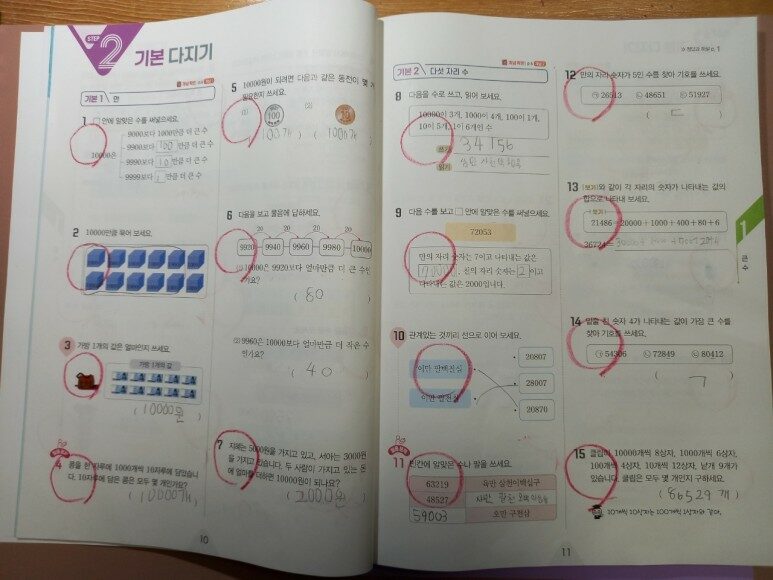 STEP 2 기본 다지기
기본 1 만
1 □ 안에 알맞은 수를 써넣으세요.
10000은
9000보다 1000만큼 더 큰 수
9900보다 100 만큼 더 큰 수
9990보다 10 만큼 더 큰 수
9999보다 1 만큼 더 큰 수
2 10000만큼 묶어 보세요.
3 가방 1개의 값은 얼마인지 쓰세요.
가방 1개의 값
( 10000원 )
4 콩을 한 자루에 1000개씩 10자루에 담았습니
다. 10자루에 담은 콩은 모두 몇 개인가요?
( 10000개 )
5 10000원이 되려면 다음과 같은 동전이 몇 개
필요한지 쓰세요.
(1) (2)
100 10
( 100개 ) ( 1000개 )
6 다음을 보고 물음에 답하세요.
20 20 20 20
9920 9940 9960 9980 10000
(1) 10000은 9920보다 얼마만큼 더 큰 수인
가요?
( 80 )
(2) 9960은 10000보다 얼마만큼 더 작은 수
인가요?
( 40 )
7 지혜는 5000원을 가지고 있고, 서아는 3000원
을 가지고 있습니다. 두 사람이 가지고 있는 돈
에 얼마를 더하면 10000원이 되나요?
( 2000원 )
10
정답과 해설 p. 1
기본 2 다섯 자리 수
8 다음을 수로 쓰고, 읽어 보세요.
10000이 3개, 1000이 4개, 100이 1개,
10이 5개, 1이 6개인 수
쓰기 34156
읽기
9 다음 수를 보고 □ 안에 알맞은 수를 써넣으세요.
72053
만의 자리 숫자는 7이고 나타내는 값은
70000, 천의 자리 숫자는 2 이고
나타내는 값은 2000입니다.
10 관계있는 것끼리 선으로 이어 보세요.
이만 팔백칠십
이만 팔천칠
20807
28007
20870
11 빈칸에 알맞은 수나 말을 쓰세요.
63219 육만 삼천이백십구
48527
59003 오만 구천삼
12 만의 자리 숫자가 5인 수를 찾아 기호를 쓰세요.
㉠ 26513 ㉡ 48651 ㉢ 51927
( ㄷ )
13 보기와 같이 각 자리의 숫자가 나타내는 값의
합으로 나타내 보세요.
보기
21486=20000+1000+400+80+6
36724=
14 밑줄 친 숫자 4가 나타내는 값이 가장 큰 수를
찾아 기호를 쓰세요.
㉠ 54306 ㉡ 72849 ㉢ 80412
( ㄱ )
15 클립이 10000개씩 8상자, 1000개씩 6상자,
100개씩 4상자, 10개씩 12상자, 낱개 9개가
있습니다. 클립은 모두 몇 개인지 구하세요.
( 86529 개 )
10개씩 10상자는 100개씩 1상자와 같아.
1
큰 수
11